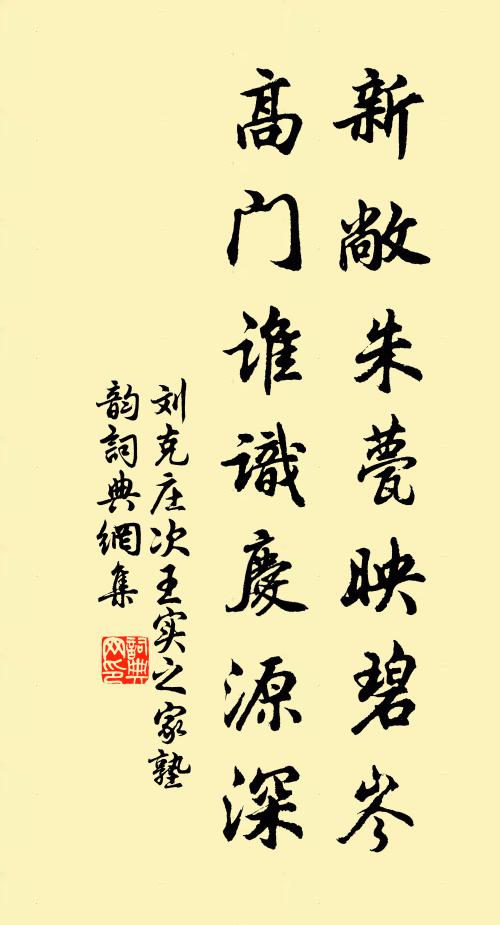 新敞朱甍映碧岑
高门谁識慶源深
刘克庄次王实之家塾
韵詞典網集
詞典网印